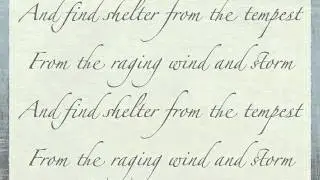 And find shelter from the tempest
From the raging wind and storm
And find shelter from the tempest
From the raging wind and storm